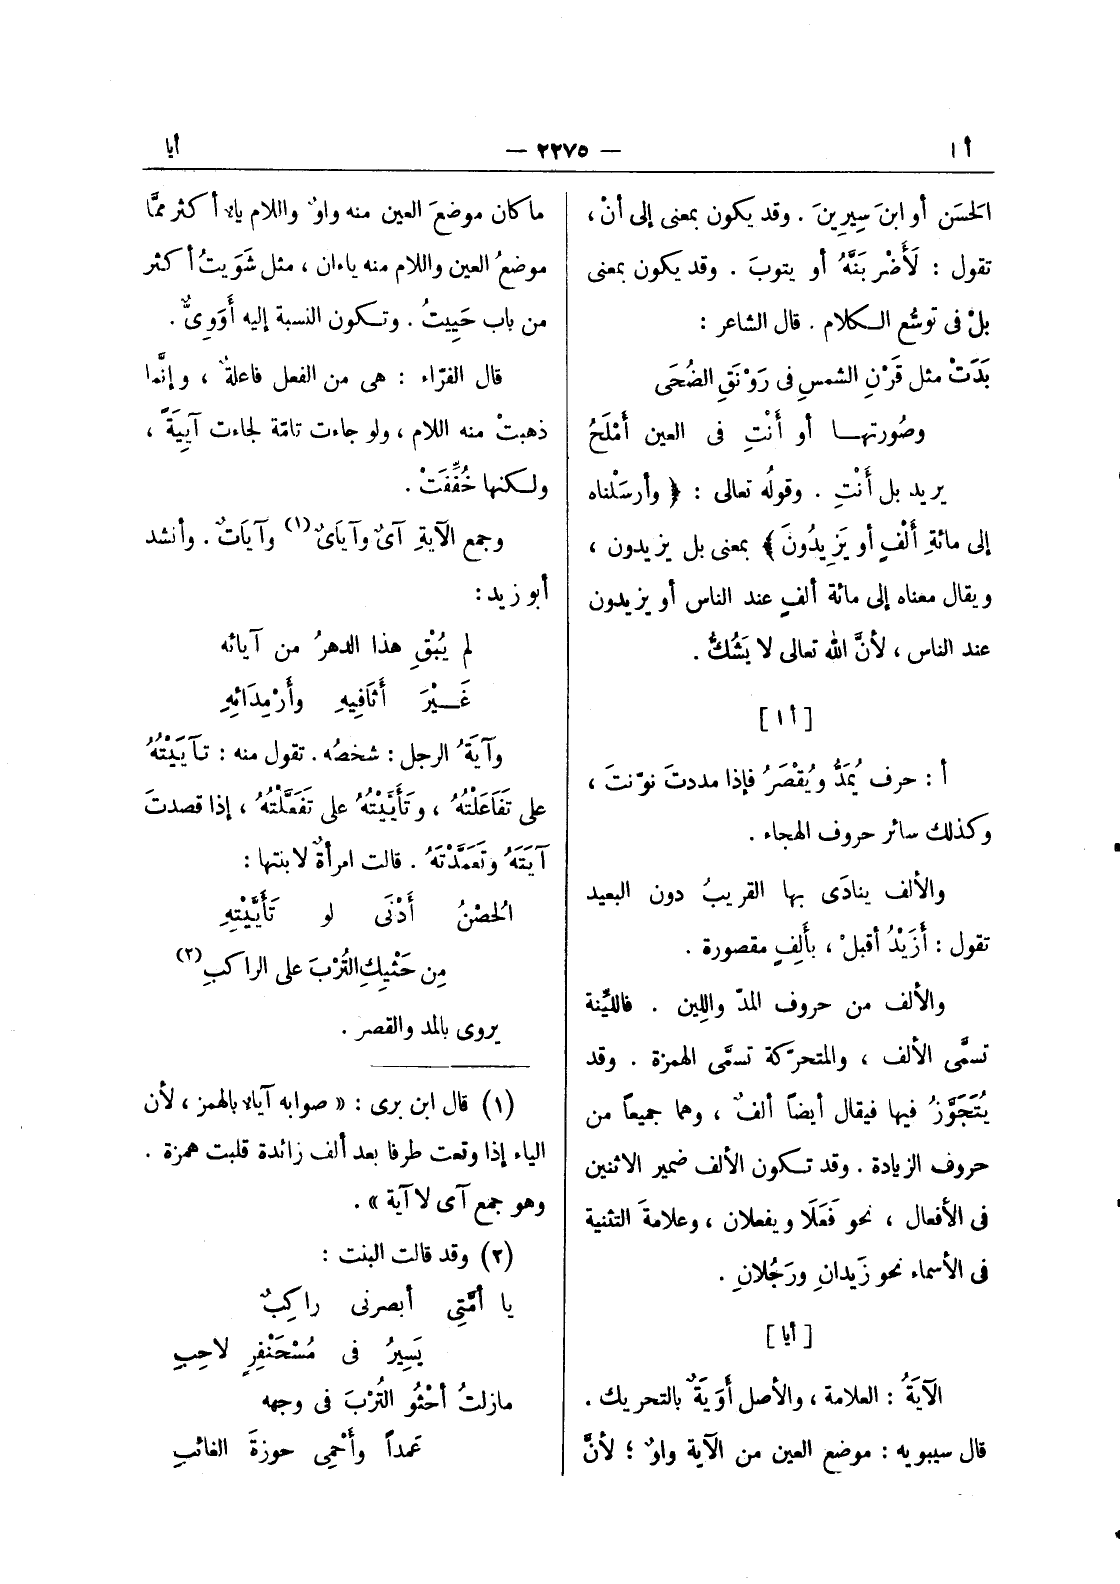 أ ا
— ٢٢٧٥ —
أيا
الحَسَن أو ابنَ سِيرِينَ . وقد يكون بمعنى إلى أنْ ،
تقول : لَأَضْرِبَنَّهُ أو يتوبَ . وقد يكون بمعنى
بلْ فى توسُّع الـكلام . قال الشاعر :
بَدَتْ مثل قَرْنِ الشمسِ فى رَوْنَقِ الضُحَى
وصُورتهـا أو أَنْتِ فى العين أَمْلَحُ
يريد بل أَنْتِ . وقولُه تعالى : ﴿ وأرسَلْناه
إلى مائةِ أَلْفٍ أو يَزِيدُونَ ﴾ بمعنى بل يزيدون ،
ويقال معناه إلى مائة ألفٍ عند الناس أو يزيدون
عند الناس ، لأنَّ الله تعالى لا يَشُكُّ .
[ أا ]
أ : حرف يُمَدُّ ويُقْصَرُ فإذا مددتَ نوّنتَ ،
وكذلك سائر حروف الهجاء .
والألف ينادَى بها القريبُ دون البعيد
تقول : أَزَيْدُ أقبلْ ، بأَلِفٍ مقصورة .
والألف من حروف المدّ واللِين . فاللَيِّنة
تسمَّى الألف ، والمتحرّكة تسمَّى الهمزة . وقد
يُتَجَوَّزُ فيها فيقال أيضاً ألفٌ ، وهما جميعاً من
حروف الزيادة . وقد تـكون الألف ضمير الاثنين
فى الأفعال ، نحو فَعَلَا ويفعلان ، وعلامةَ التثنية
فى الأسماء نحو زَيدانِ ورَجُلانِ .
[ أيا ]
الآيَةُ : العلامة ، والأصل أَوَيَةٌ بالتحريك .
قال سيبويه : موضع العين من الآية واوٌ ؛ لأنَّ
ما كان موضعَ العين منه واوٌ واللام ياء أكثر ممَّا
موضعُ العين واللام منه ياءان ، مثل شَوَيتُ أكثر
من باب حَيِيتُ . وتـكون النسبة إليه أَوَوِىٌّ .
قال الفرّاء : هى من الفعل فاعلةٌ ، وإنَّما
ذهبتْ منه اللام ، ولو جاءت تامّة لجاءت آيِيَةً ،
ولـكنها خُفِّفَتْ .
وجمع الآيةِ آىٌ وآياَىٌ (١) وآيَاتٌ . وأنشد
أبو زيد :
لم يُبْقِ هذا الدهرُ من آيائه
غَـيْرَ أَثَافِيهِ وأَرْمِدَائِهِ
وآيَةُ الرجل : شخصُه . تقول منه : تآيَيْتُهُ
على تَفَاعَلْتُهُ ، وتَأَيَّيْتُهُ على تَفَعَّلْتُهُ ، إذا قصدتَ
آيَتَهُ وتَعَمَّدْتَهُ . قالت امرأةٌ لابنتها :
الحُصْنُ أَدْنَى لو تَأَيَّيْتِهِ
مِن حَثْيِكِ التُرْبَ على الراكبِ (٢)
يروى بالمد والقصر .
(١) قال ابن برى : « صوابه آياء بالهمز ، لأن
الياء إذا وقعت طرفا بعد ألف زائدة قلبت همزة .
وهو جمع آى لا آية » .
(٢) وقد قالت البنت :
يا أمَّتِي أبصرنى راكبٌ
يَسِيرُ فى مُسْحَنْفِرٍ لاحِبِ
مازلتُ أحْثُو التُرْبَ فى وجهه
عَمداً وأَحْمِى حوزةَ الغائبِ